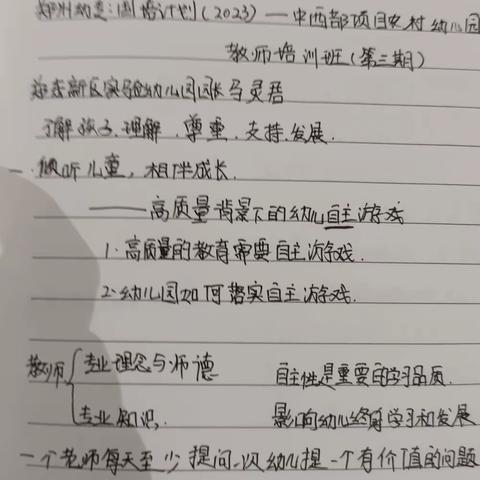 郑州幼专:国培计划(2023)—中西部项目农村幼儿园
教师培训班(第三期)
郑东新区实验幼儿园园长马灵君
了解孩子.理解.尊重.支持.发展.
一.倾听儿童,相伴成长.
——高质量背景下的幼儿自主游戏
1.高质量的教育需要自主游戏.
2.幼儿园如何落实自主游戏.
教师{专业理念与师德 自主性是重要的学习品质.
专业知识. 影响幼儿终身学习和发展
一个老师每天至少提问一次幼儿提一个有价值的问题